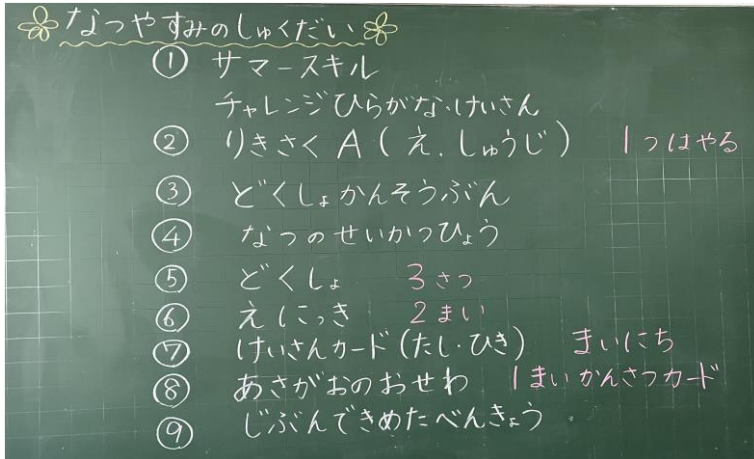 なつやすみのしゅくだい
① サマースキル
チャレンジひらがな・けいさん
② りきさくA(え.しゅうじ) 1つはやる
③ どくしょかんそうぶん
④ なつのせいかつひょう
⑤ どくしょ 3さつ
⑥ えにっき 2まい
⑦ けいさんカード(たし・ひき) まいにち
⑧ あさがおのおせわ 1まいかんさつカード
⑨ じぶんできめたべんきょう